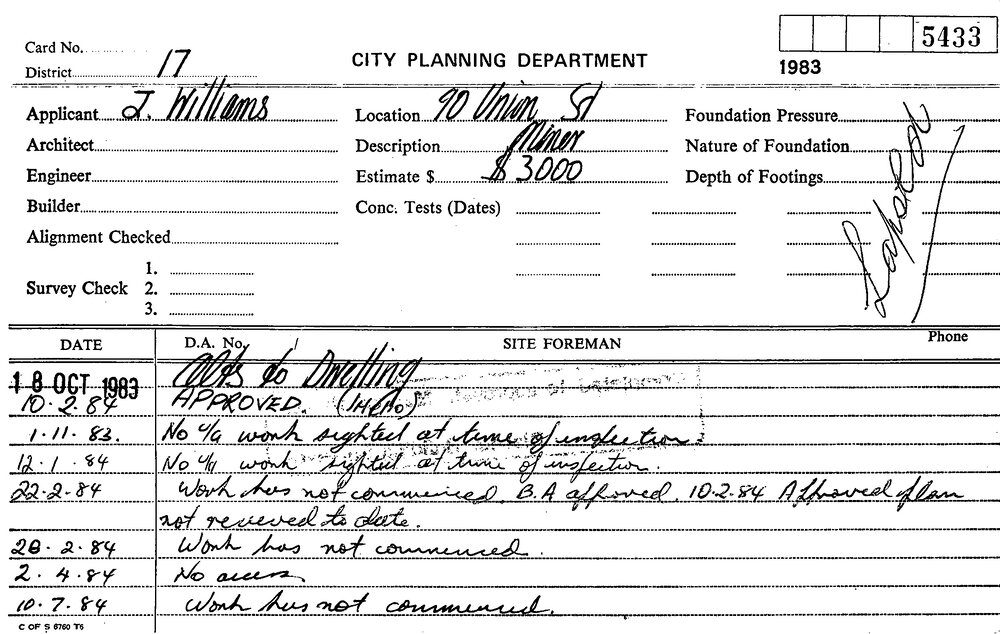 5433
Card No.
CITY PLANNING DEPARTMENT
1983
District 17
Applicant J. Williams Location 90 Union St Foundation Pressure
Architect Description Minor Nature of Foundation
Engineer Estimate $ $ 3000 Depth of Footings
Builder Conc. Tests (Dates)
Lapsed
Alignment Checked
1.
Survey Check 2.
3.
DATE D.A. No. SITE FOREMAN Phone
18 OCT 1983 Alts to Dwelling
10.2.84 APPROVED.
1.11.83. No u/a work sighted at time of inspection.
12.1.84 No u/a work sighted at time of inspection.
22-2-84 Work has not commenced B.A approved. 10.2.84 Approved plan
not recieved to date.
28.2.84 Work has not commenced.
2.4.84 No access
10.7.84 Work has not commenced.
C OF S 6760 T6